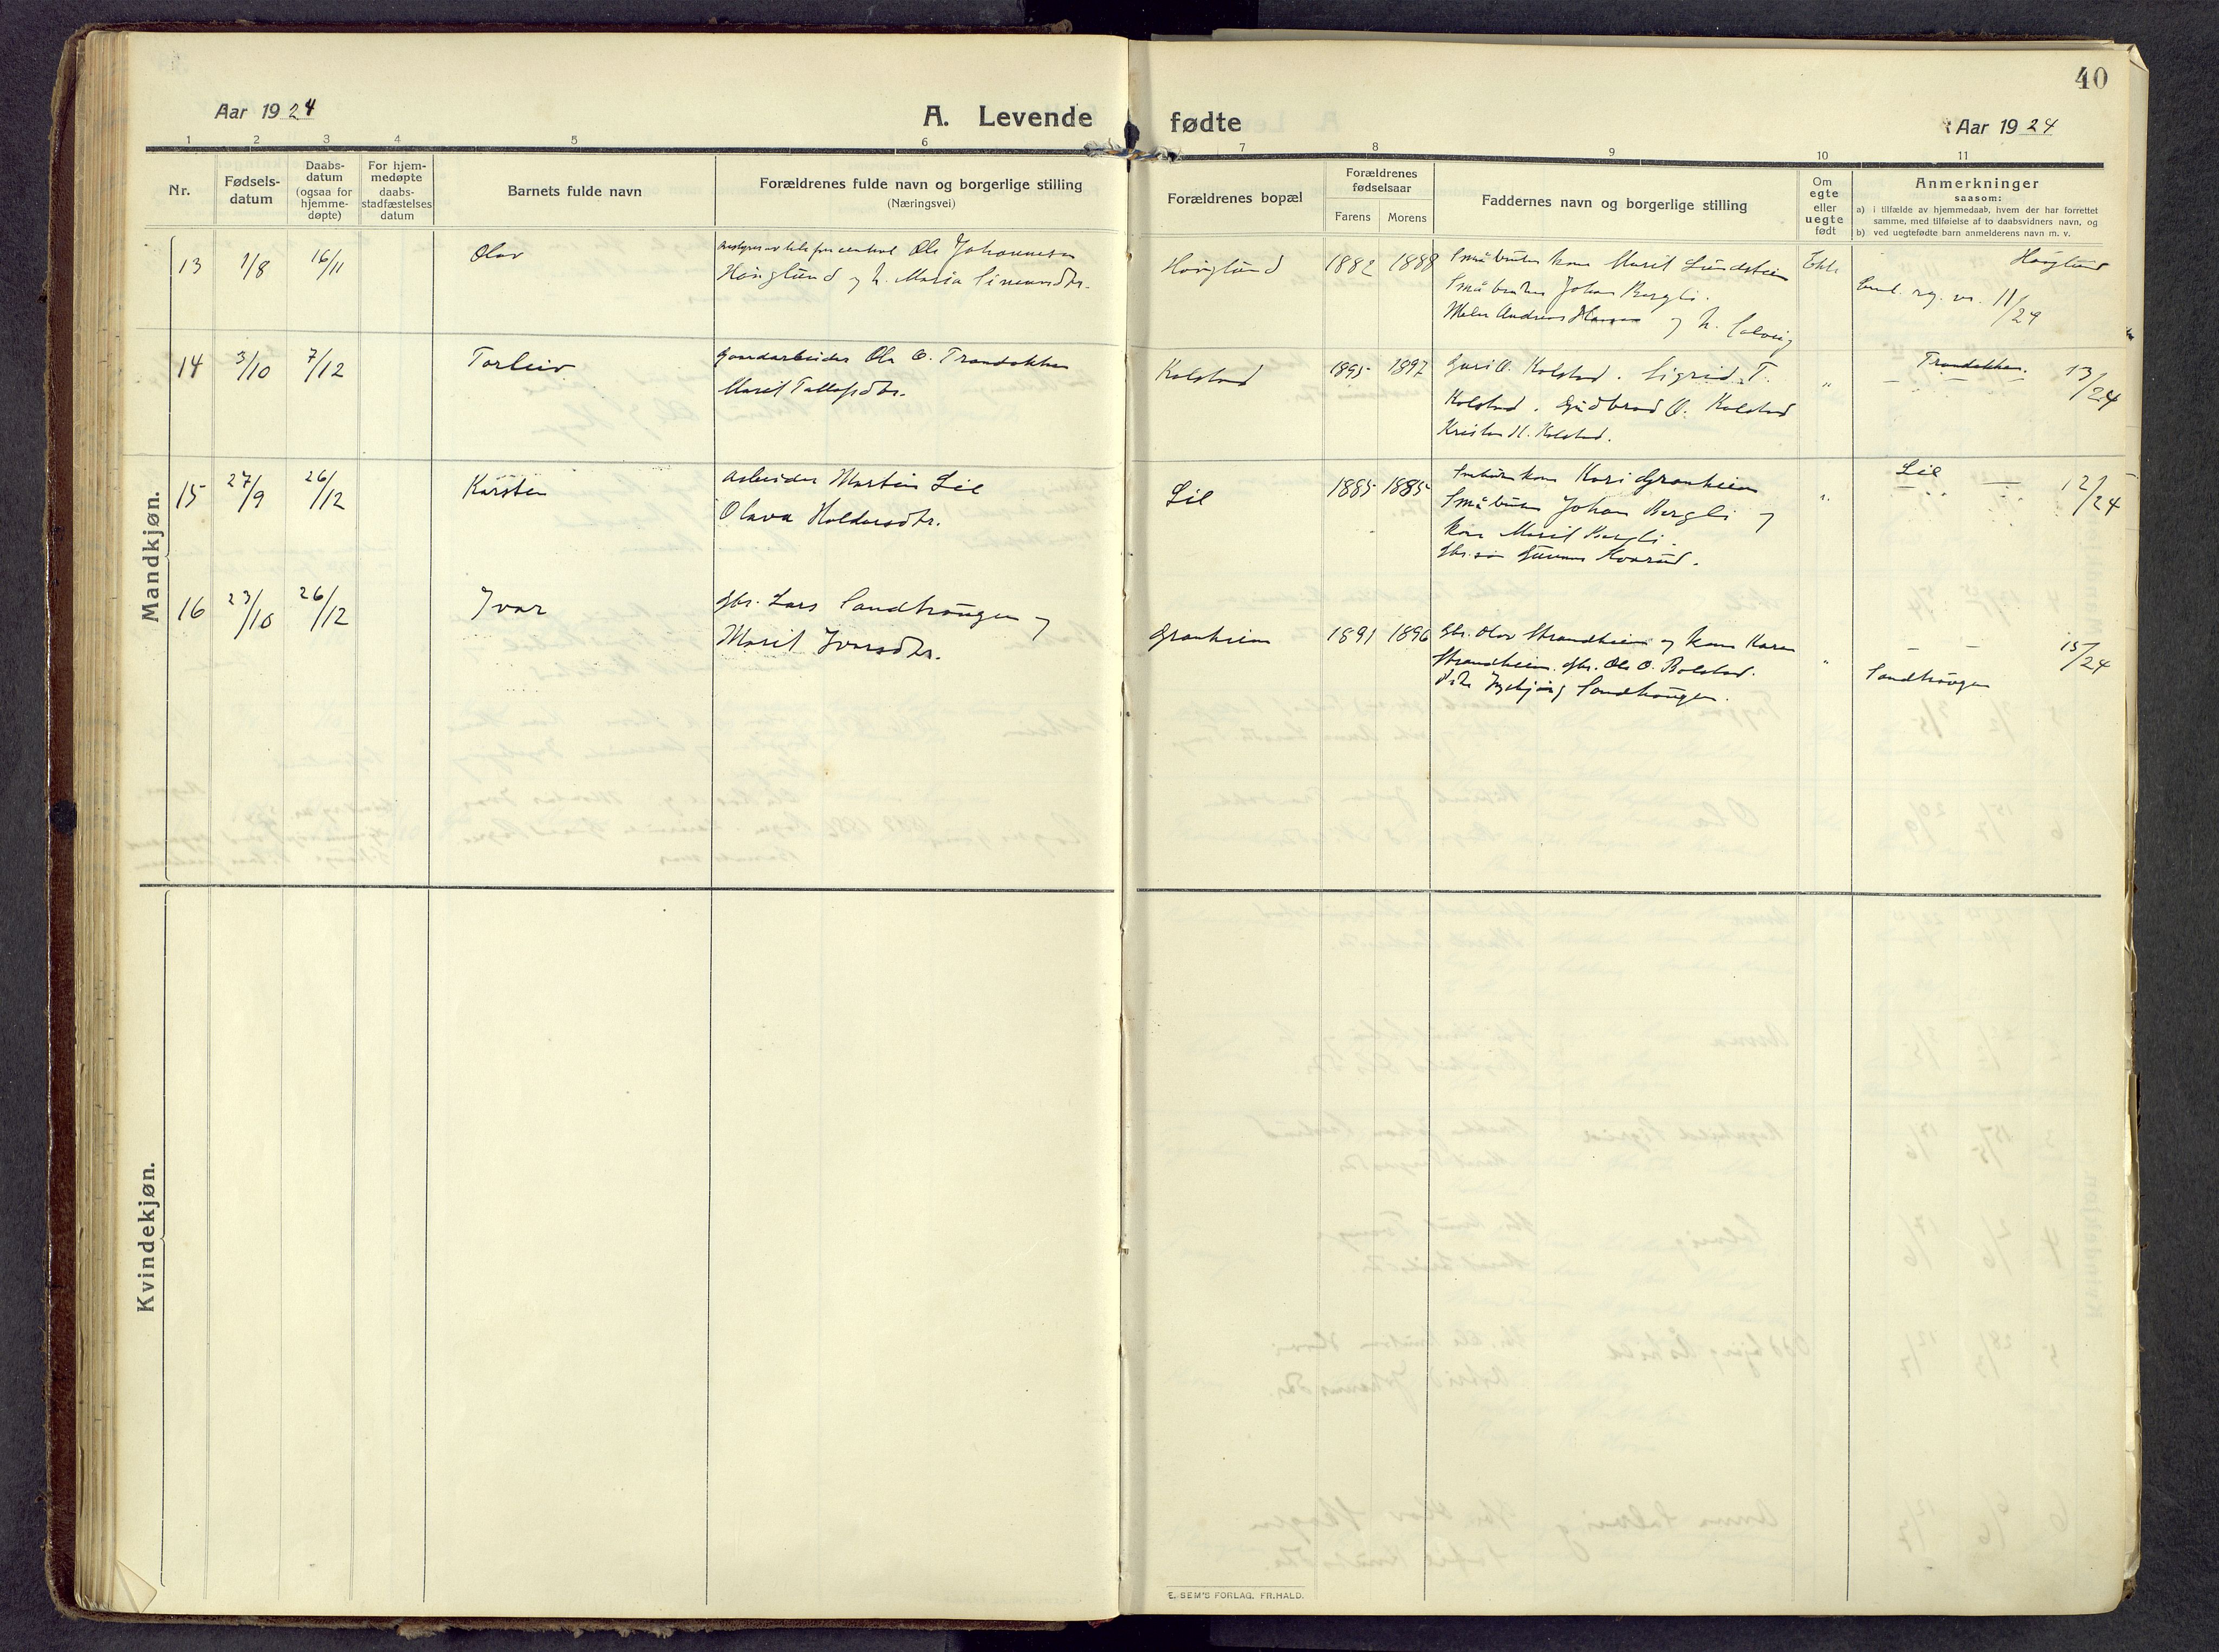 40
Aar 1924
A. Levende fødte
Aar 1924
1 2 3 4 5 6 7 8 9 10 11
Nr.
Fødsels-
datum
Daabs-
datum
(ogsaa for
hjemme-
døpte)
For hjem-
medøpte
daabs-
stadfæstelses
datum
Barnets fulde navn
Forældrenes fulde navn og borgerlige stilling
(Næringsvei)
Forældrenes bopæl
Forældrenes
fødselsaar
Farens Morens
Faddernes navn og borgerlige stilling
Om
egte
eller
uegte
født
Anmerkninger
saasom:
a) i tilfælde av hjemmedaab, hvem der har forrettet
samme, med tilføielse af to daabsvidners navn, og
b) ved uegtefødte barn anmelderens navn m. v.
Mandkjøn.
13 1/8 16/11 Olav
Ole Johannesen
Høiglund og h. Maria Simensdtr.
Høiglund 1882 1888
kone Marit Lundstein
Småbruker Johan Bergli.
Maler Andreas Hansen og h. Solveig
Ekte
Høiglund
11/24
14 3/10 7/12 Torleiv
Gaardarbeider Ole O. Trandokken
Marit Tollefsdtr.
Kolstad 1895 1897
Guri O. Kolstad. Sigrid T.
Kolstad. Gudbrand O. Kolstad
Kristen H. Kolstad.
"
Trandokken. 13/24
15 27/9 26/12 Karsten
Arbeider Martin Lie
Olava Haldorsdtr.
Lie 1885 1885
kone Kari Granheim
Småbruker Johan Bergli og
kone Marit Bergli.
Gbr. søn Gunnar Kvarud.
"
Lie 12/24
16 23/10 26/12 Ivar
Gbr. Lars Sandhaugen og
Marit Ivarsdtr.
Granheim 1891 1896
Gbr. Olav Strandheim og kone Karen
Strandheim. Gbr. Ole O. Bolstad.
Pike Ingebjørg Sandhaugen.
"
15/24
Sandhaugen
Kvindekjøn.
E. SEM'S FORLAG, FR.HALD.